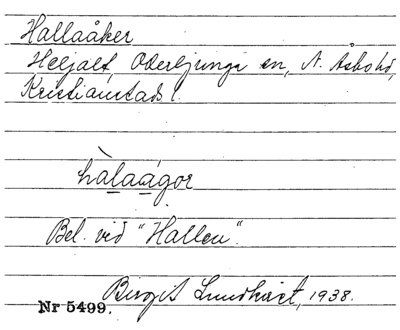 Hallaåker
Heljalt, Oderljunga sn, N. Åsbo hd,
Kristianstads l.
hàlaágor
Bel. vid "Hallen".
Birgit Lundkvist, 1938.
Nr 5499.